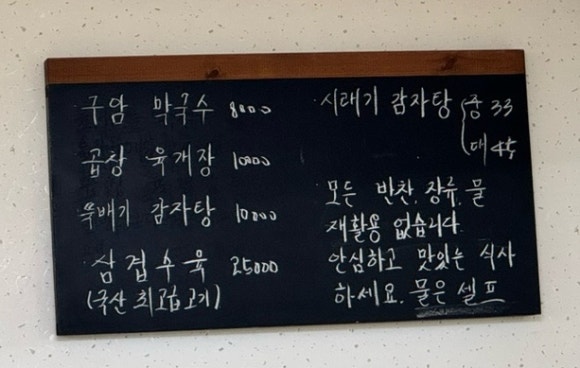 구암 막국수 8000
곱창 육개장 10000
뚝배기 감자탕 10000
삼겹수육 25000
(국산 최고급고기)
시래기 감자탕 중 33
대 45
모든 반찬, 장류, 물
재활용 없습니다.
안심하고 맛있는 식사
하세요. 물은 셀프